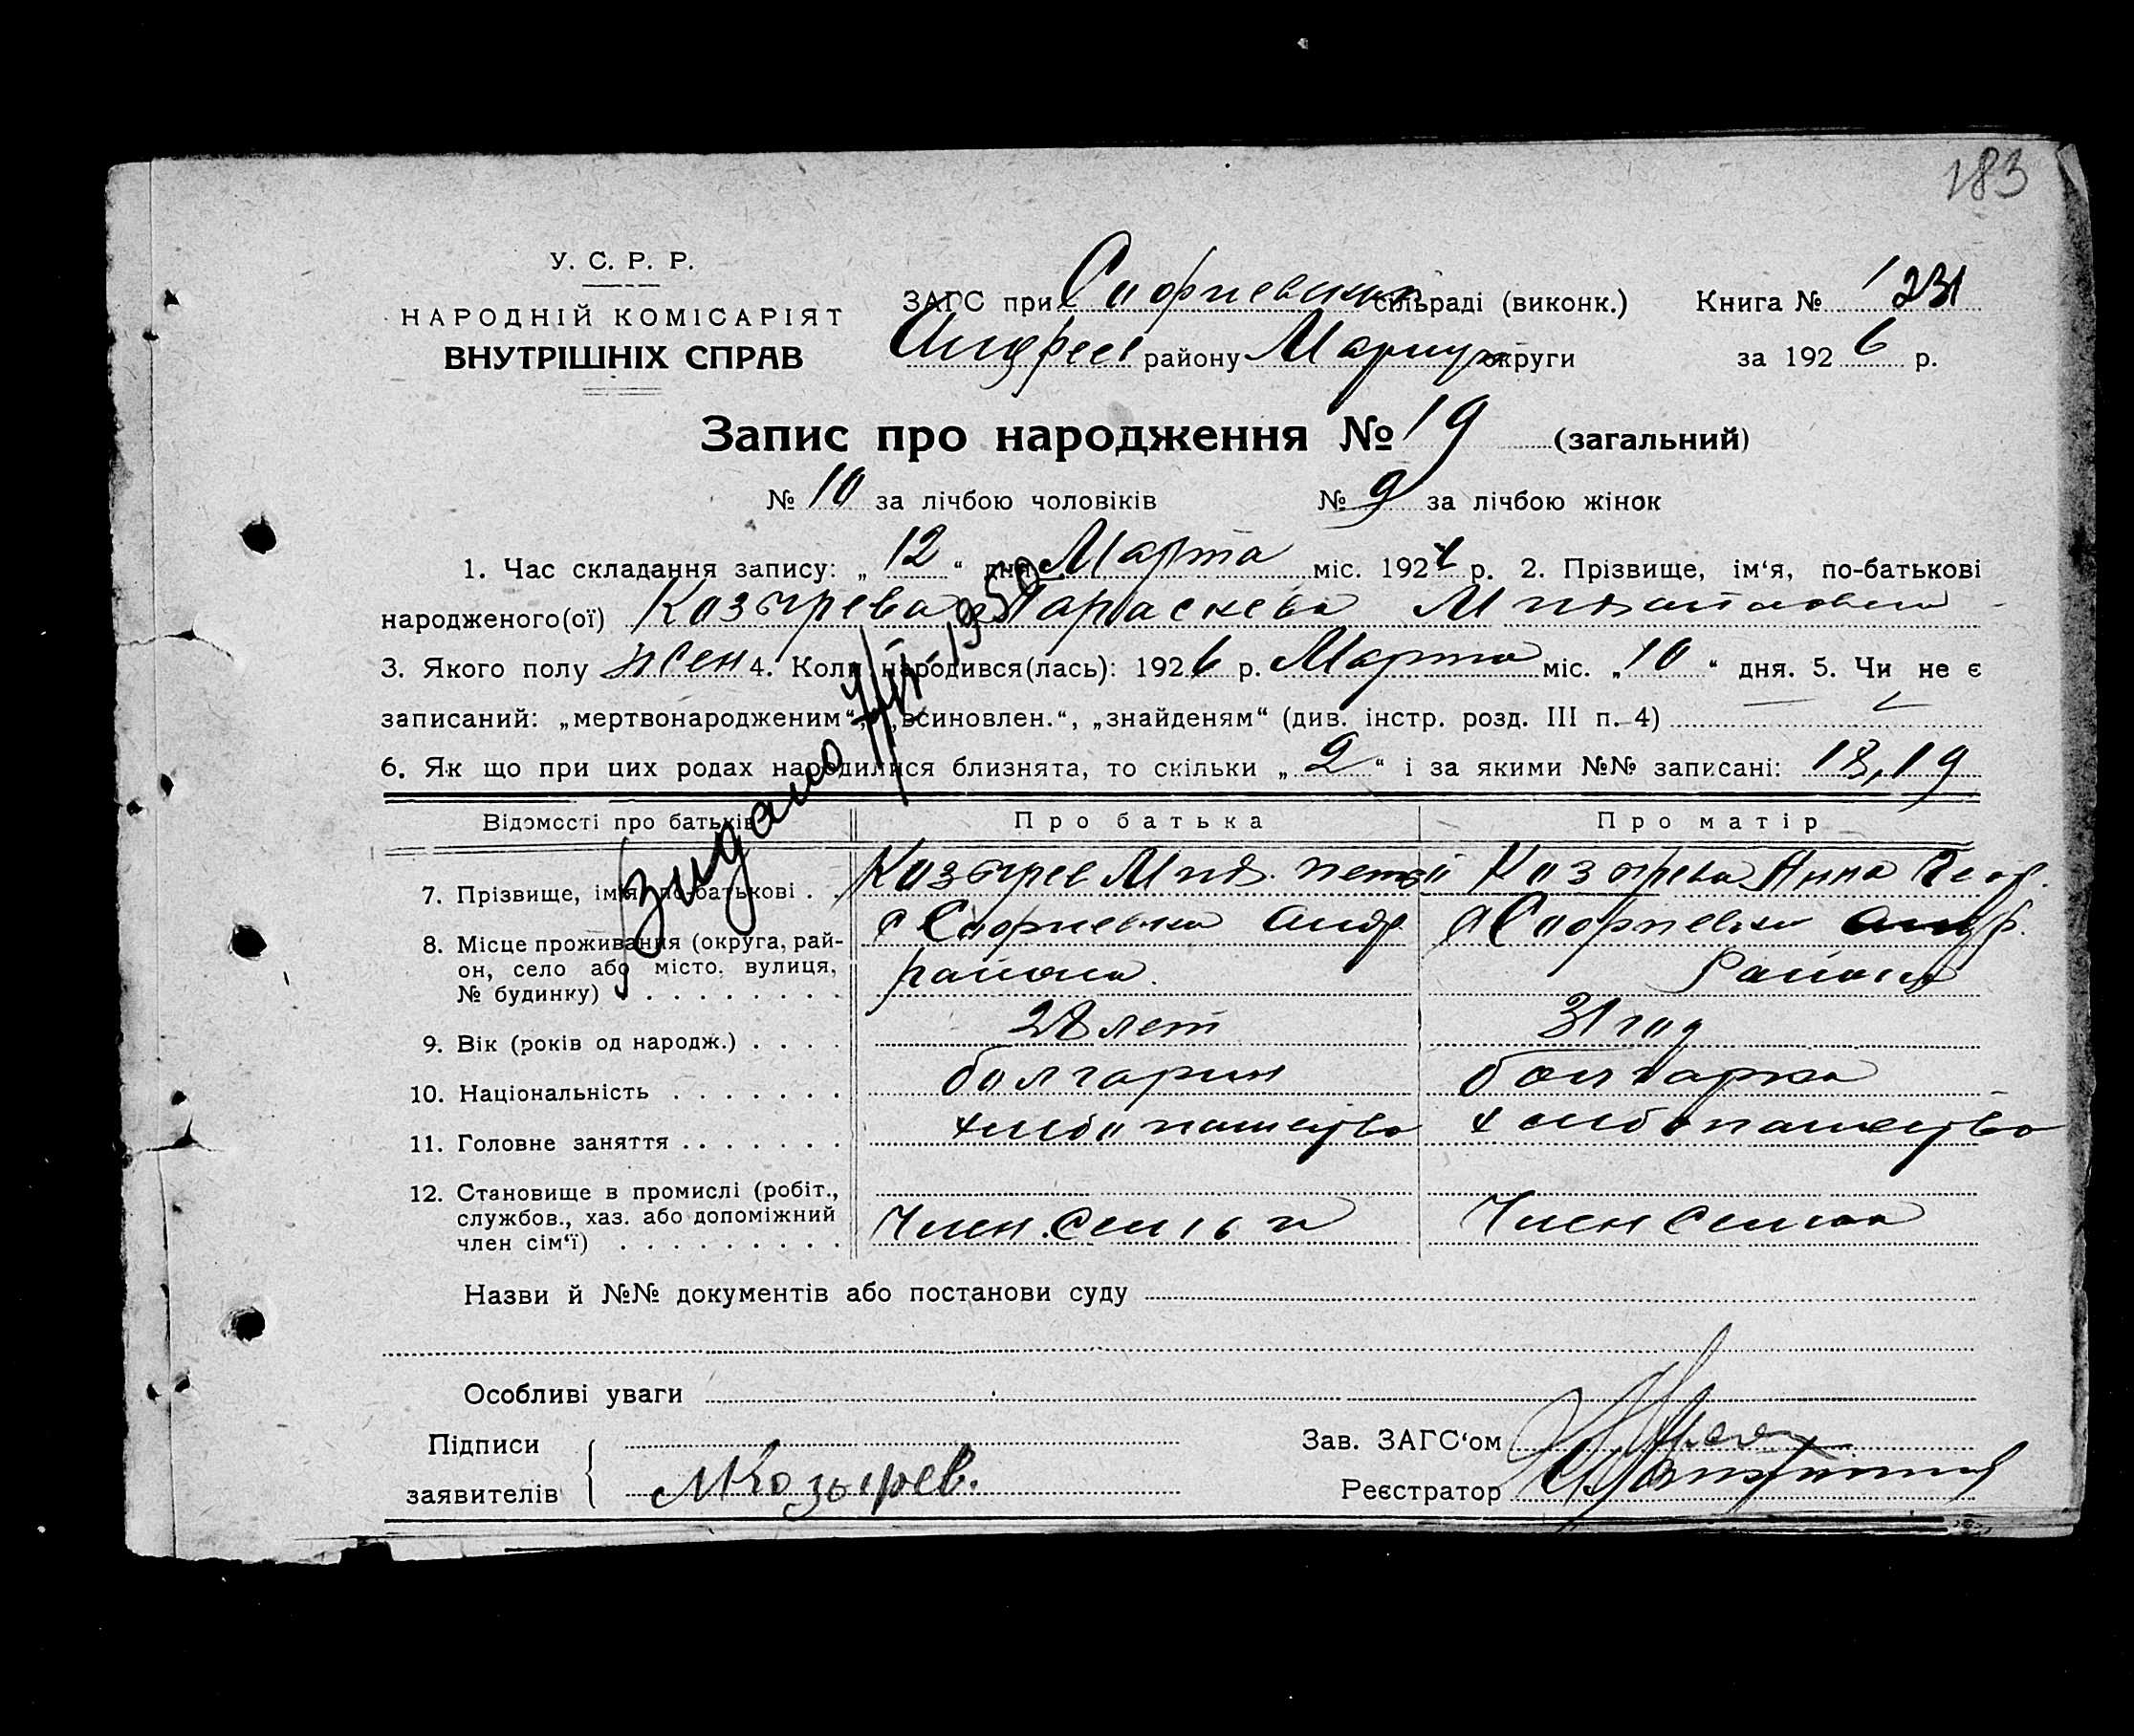 183
У. С. Р. Р.
НАРОДНІЙ КОМІСАРІЯТ
ВНУТРІШНІХ СПРАВ
ЗАГС при Софиевским сільраді (виконк.) Книга № 231
Андреев району Мариуп округи за 1926 р.
Запис про народження № 19 (загальний)
№ 10 за лічбою чоловіків № 9 за лічбою жінок
1. Час складання запису: „12“ дня Марта міс. 1926 р. 2. Прізвище, ім‘я, по-батькові
народженого(ої) Козырева Параскева
3. Якого полу жен 4. Коли народився(лась): 1926 р. Марта міс. „10“ дня. 5. Чи не є
записаний: „мертвонародженим“, „всиновлен.“, „знайденям“ (див. інстр. розд. III п. 4)
6. Як що при цих родах народилися близнята, то скільки „2“ і за якими №№ записані: 18, 19
Відомості про батьків Про батька Про матір
7. Прізвище, ім‘я, по-батькові . . Козырев Мих. Козырева Анна Геор.
8. Місце проживання (округа, рай-
он, село або місто, вулиця,
№ будинку) . . . . . . . . .
с Софиевка Андр с Софиевки Андр.
района. Района
9. Вік (років од народж.) . . . . 28 лет 31 год
10. Національність . . . . . . . болгарин болгарка
11. Головне заняття . . . . . . . хлебопашество хлебопашество
12. Становище в промислі (робіт.,
службов., хаз. або допоміжний
член сім‘ї) . . . . . . . . .
Член семьи Член семьи
Назви й №№ документів або постанови суду
Особливі уваги
Підписи
заявителів
МКозырев.
Зав. ЗАГС‘ом
Реєстратор
1950